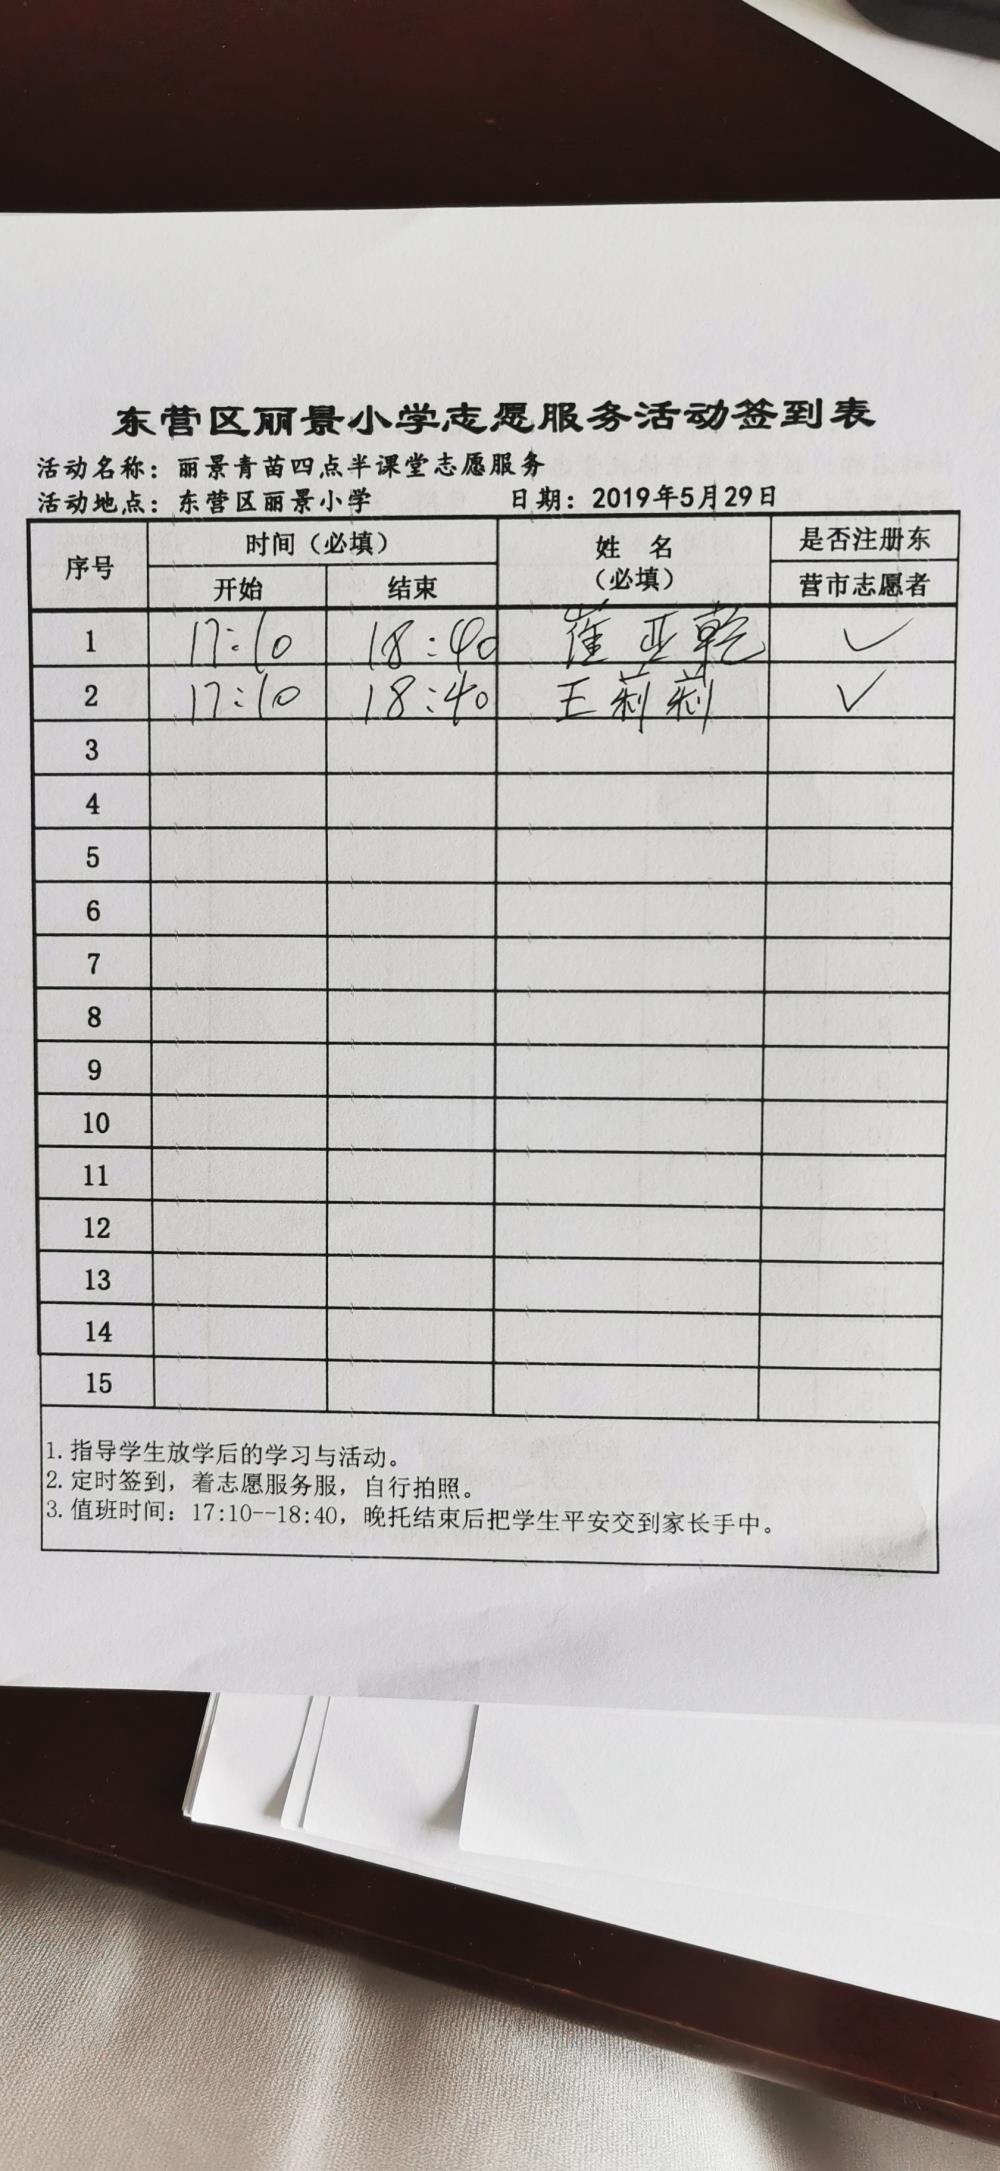 东营区丽景小学志愿服务活动签到表
活动名称：丽景青苗四点半课堂志愿服务
活动地点：东营区丽景小学 日期：2019年5月29日
序号 时间（必填） 姓 名（必填） 是否注册东营市志愿者
开始 结束
1 17:10 18:40 崔亚乾 ✓
2 17:10 18:40 王莉莉 ✓
3
4
5
6
7
8
9
10
11
12
13
14
15
1. 指导学生放学后的学习与活动。
2. 定时签到，着志愿服务服，自行拍照。
3. 值班时间：17:10--18:40，晚托结束后把学生平安交到家长手中。